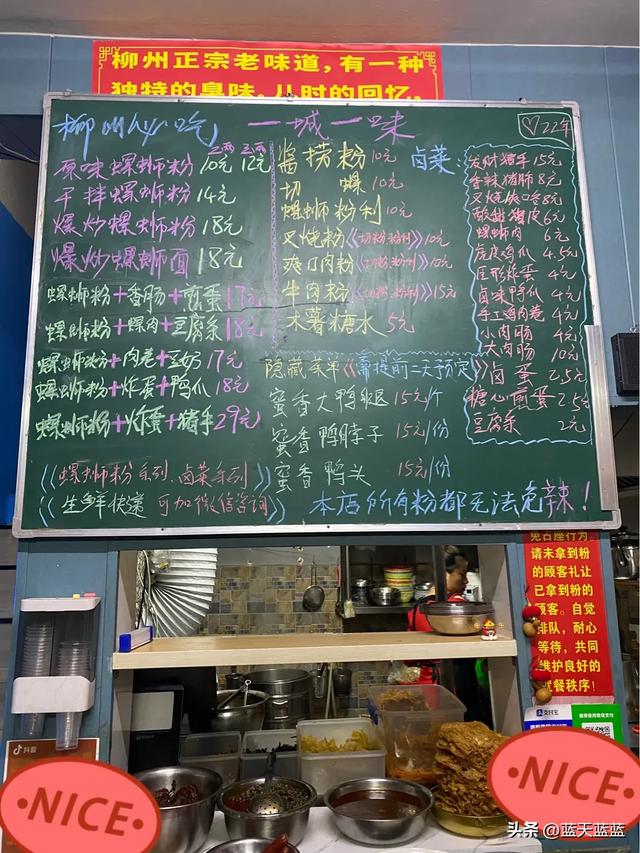 柳州正宗老味道，有一种
独特的臭味，儿时的回忆。
柳州必吃
一城一味
22年
二两 三两
原味螺蛳粉 10元 12元
干拌螺蛳粉 14元
爆炒螺蛳粉 18元
爆炒螺蛳面 18元
螺蛳粉+香肠+煎蛋 17元
螺蛳粉+螺肉+豆腐条 18元
螺蛳粉+肉卷+豆奶 17元
螺蛳粉+炸蛋+鸭爪 18元
螺蛳粉+炸蛋+猪手 29元
《螺蛳粉系列、卤菜系列》
《生鲜快递 可加微信咨询》
酱捞粉 10元
切螺 10元
螺蛳粉利 10元
叉烧粉《切粉 粉利》10元
爽口肉粉《切粉 粉利》10元
牛肉粉《切粉 粉利》15元
木薯糖水 5元
隐藏菜单《需提前一天预定》
蜜香大鸭腿 15元/个
蜜香鸭脖子 15元/份
蜜香鸭头 15元/份
本店所有粉都无法免辣！
卤菜：
发财猪手 15元
香辣猪肺 8元
酸甜猪皮 6元
螺蛳肉 6元
虎皮鸡爪 4.5元
巨形炸蛋 4元
卤味鸭爪 4元
手工鸡肉卷 4元
小肉肠 4元
大肉肠 10元
卤蛋 2.5元
糖心煎蛋 2.5元
豆腐条 2元
免占座行为。
请未拿到粉
的顾客礼让
已拿到粉的
顾客。自觉
排队，耐心
等待，共同
维护良好的
就餐秩序！
抖音
支付宝
NICE
NICE
头条 @蓝天蓝蓝